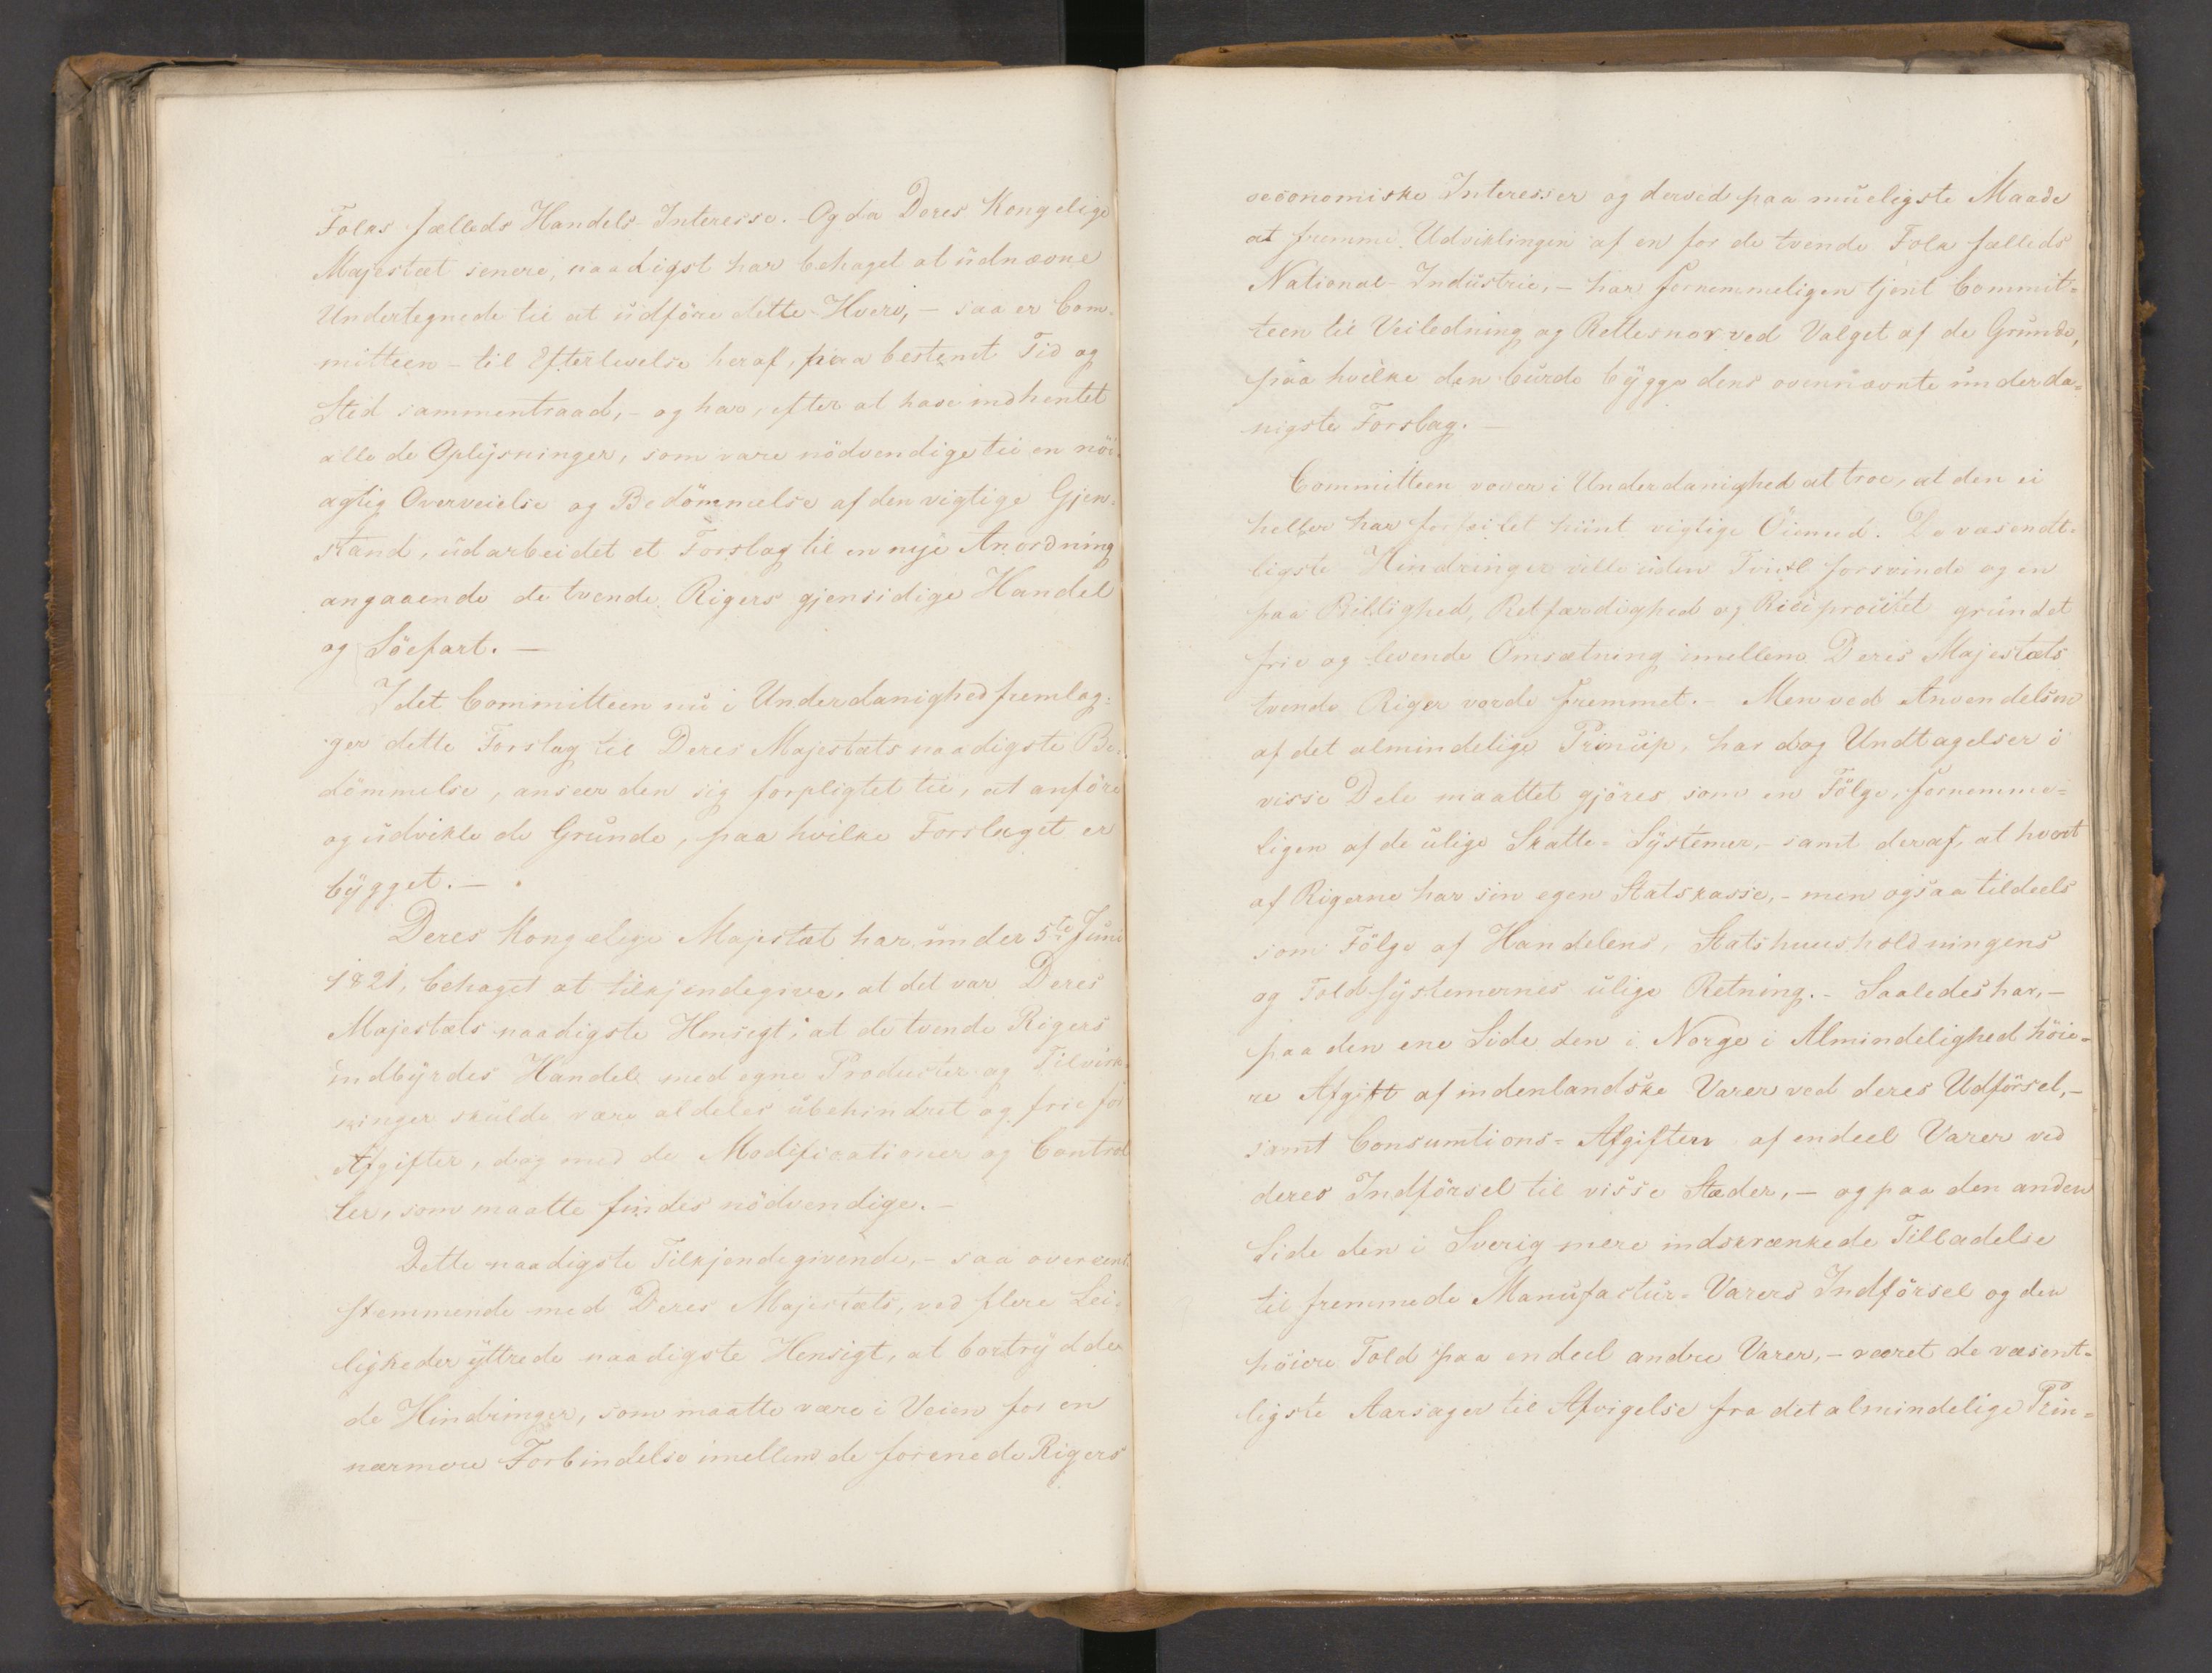 Folks fælleds Handels-Interesse. Og da Deres Kongelige
Majestæt senere, naadigst har behaget at udnævne
Undertegnede til at udföre dette Hverv, — saa er Com-
mitteen – til Efterlevelse heraf, paa bestemt Tid og
Sted sammentraad, – og har, efter at have indhentet
alle de Oplysninger, som vare nödvendige til en nöi-
agtig Overveielse og Bedömmelse af den vigtige Gjen-
stand, udarbeidet et Forslag til en nye Anordning
angaaende de tvende Rigers gjensidige Handel
og Söefart. —
Idet Committeen nu i Underdanighed fremlæg-
ger dette Forslag til Deres Majestæts naadigste Be-
dömmelse, anseer den sig forpligtet til, at anföre
og udvikle de Grunde, paa hvilke Forslaget er
bygget. —
Deres Kongelige Majestæt har under 5te Juni
1821, behaget at tilkjendegive, at det var Deres
Majestæts naadigste Hensigt: at de tvende Rigers
indbyrdes Handel med egne Producter og Tilvirk-
ninger skulde være aldeles ubehindret og frie for
Afgifter, dog med de Modificationer og Control-
ler, som maatte findes nödvendige. –
Dette naadigste Tilkjendegivende, – saa overeens-
stemmende med Deres Majestæts, ved flere Lei-
ligheder yttrede naadigste Hensigt, at bortrydde
de Hindringer, som maatte være i Veien for en
nærmere Forbindelse imellem de forenede Rigers
oeconomiske Interesser og derved paa mueligste Maade
at fremme Udviklingen af en for de tvende Folk fælleds
National-Industrie, – har fornemmeligen tjent Commit=
teen til Veiledning og Rettesnor ved Valget af de Grunde,
paa hvilke den burde bygge dens ovennævnte underda=
nigste Forslag. —
Committeen vover i Underdanighed at troe, at den ei
heller har forfeilet hiint vigtige Öiemed. De væsendt-
ligste Hindringer ville uden Tvivl forsvinde og en
paa Billighed, Retfærdighed og Reciprocitet grundet
frie og levende Omsætning imellem Deres Majestæts
tvende Riger vorde fremmet. – Men ved Anvendelsen
af det almindelige Princip, har dog Undtagelser i
visse Dele maattet gjöres som en Fölge, fornemme=
ligen af de ulige Skatte-Systemer, – samt deraf, at hvert
af Rigerne har sin egen Statskasse, – men ogsaa tildeels
som Fölge af Handelens, Statshuusholdningens
og Toldsystemernes ulige Retning. – Saaledes har, –
paa den ene Side den i Norge i Almindelighed höie=
re Afgift af indenlandske Varer ved deres Udförsel, –
samt Consumtions= Afgiften af endeel Varer ved
deres Indförsel til visse Stæder, – og paa den anden
Side den i Sverig mere indskrænkede Tilladelse
til fremmede Manufactur-Varers Indförsel og den
höiere Told paa endeel andre Varer, – været de væsent-
ligste Aarsager til Afvigelse fra det almindelige Prin=